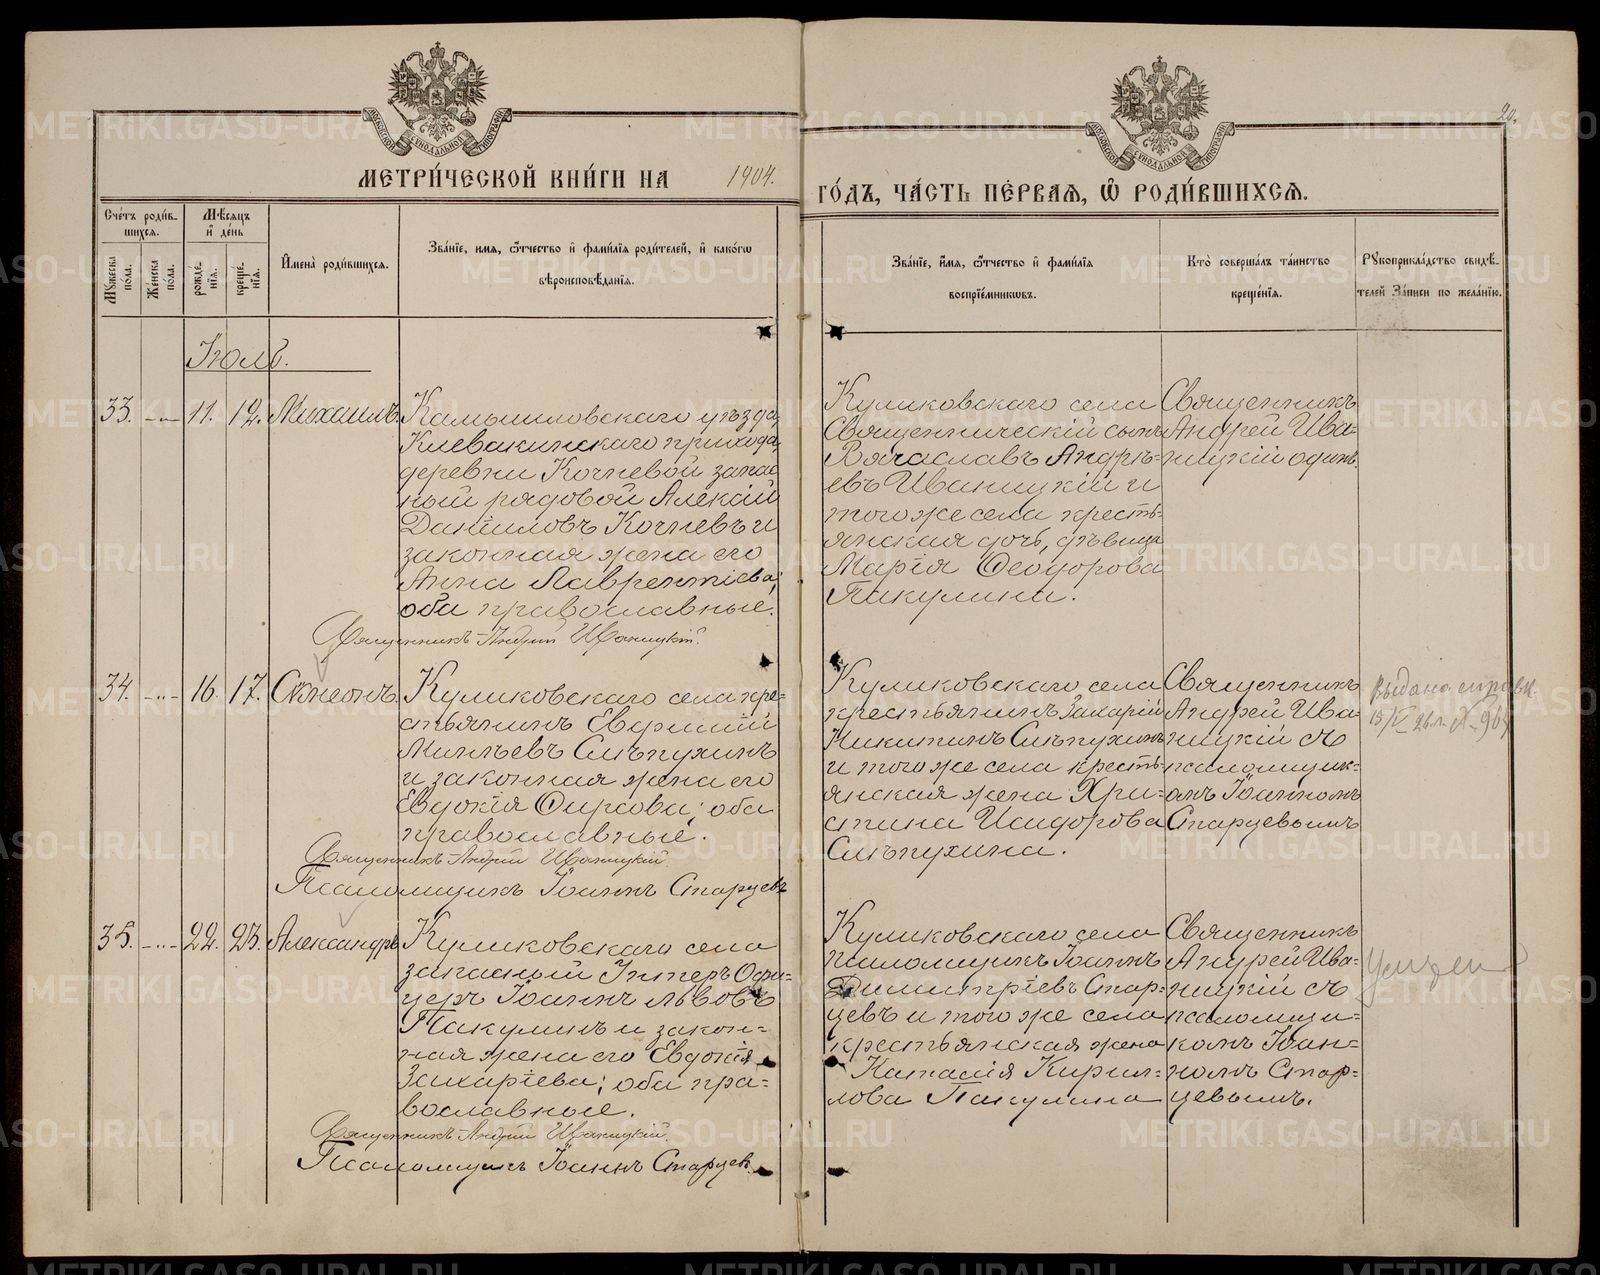 20.
МЕТРИ́ЧЕСКОЙ КНИ́ГИ НА 1904. ГО́ДЪ, ЧА́СТЬ ПЕ́РВАЯ, Ѡ҆ РОДИ́ВШИХСЯ.
Сче́тъ роди́вшихся.
Мꙋ́жеска по́ла.
Же́нска по́ла.
Мѣ́сяцъ и҆ де́нь
рожде́нїя.
креще́нїя.
И҆мена̀ роди́вшихся.
Зва́нїе, имя, ѻ҆́тчество и҆ фами́лїя роди́телей, и҆ како́гѡ
вѣроисповѣ́данїя.
Зва́нїе, и҆́мя, ѻ҆́тчество и҆ фами́лїя
воспрїе́мникѡвъ.
Кто̀ соверша́лъ та́инство
креще́нїя.
Рꙋкоприкла́дство свидѣ́телей за́писи по жела́нїю.
Іюль.
33. -"- 11. 12. Михаилъ.
Камышловскаго уѣзда,
Клевакинскаго прихода,
деревни Кочневой запас
ный рядовой Алексій
Даніиловъ Кочневъ и
законная жена его
Анна Лаврентіева;
оба православные.
Священникъ Андрей Иваницкій.
Куликовскаго села
Священническій сынъ
Вячаславъ Андрѣ-
евъ Иваницкій и
того же села кресть-
янская дочь, дѣвица
Марія Ѳеодорова
Пикулина.
Священникъ
Андрей Ива-
ницкій одинъ.
34. -"- 16. 17. Симеонъ.
Куликовскаго села кре-
стьянинъ Евфимій
Минѣевъ Слѣпухинъ
и законная жена его
Евдокія Фирсова; оба
православные.
Священникъ Андрей Иваницкій.
Псаломщикъ Іоаннъ Старцевъ
Куликовскаго села
крестьянинъ Захарій
Никитинъ Слѣпухинъ
и того же села кресть-
янская жена Хри-
стина Исидорова
Слѣпухина.
Священникъ
Андрей Ива-
ницкій съ
псаломщик-
омъ Іоанномъ
Старцевымъ
Выдана справк.
35. -"- 22. 23. Александръ
Куликовскаго села
запасный Унтеръ Офи-
церъ Іоаннъ Львовъ
Пакулинъ и закон-
ная жена его Евдокія
Захаріева; оба пра-
вославные.
Священникъ Андрей Иваницкій.
Псаломщикъ Іоаннъ Старцевъ.
Куликовскаго села
псаломщикъ Іоаннъ
Димитріевъ Стар-
цевъ и того же села
крестьянская жена
Наталія Кирил-
лова Пакулина
Священникъ
Андрей Ива-
ницкій съ
псаломщи-
комъ Іоан-
номъ Стар-
цевымъ.
METRIKI.GASO-URAL.RU